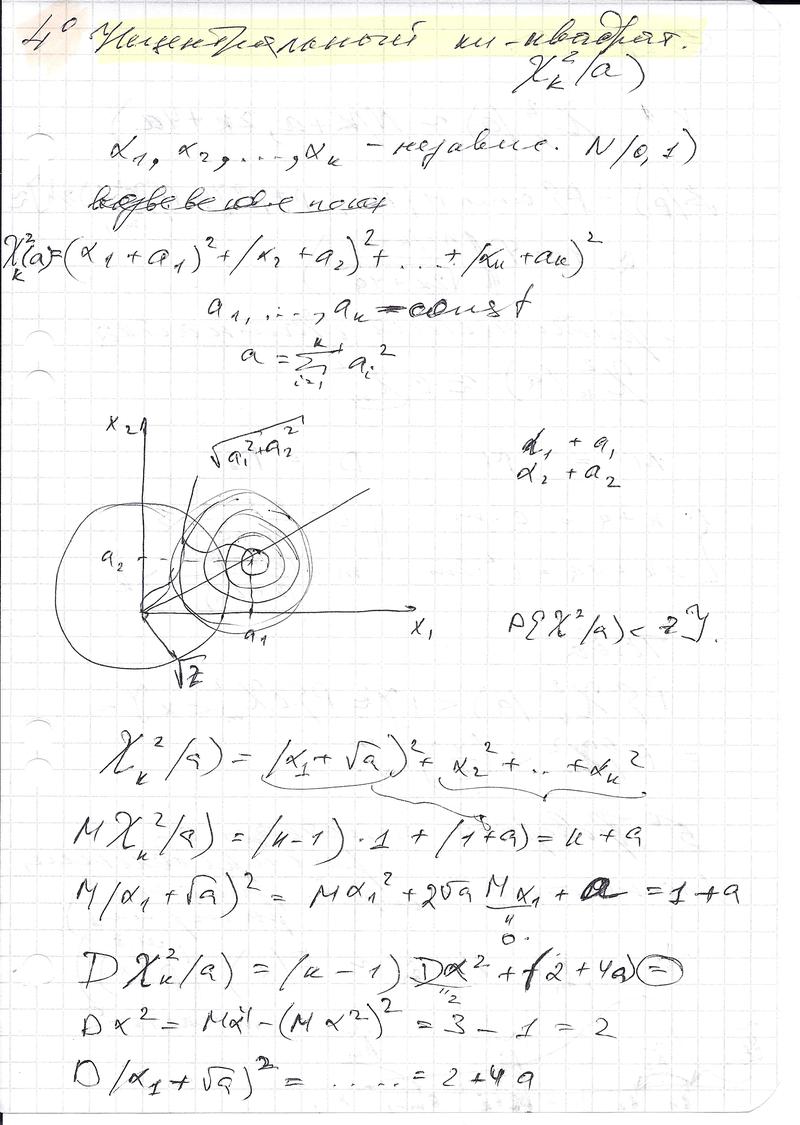 4° Нецентральный хи-квадрат.
χ_k²(a)
α₁, α₂, ..., α_k – независ. N(0,1)
χ_k²(a) = (α₁ + a₁)² + (α₂ + a₂)² + ... + (α_k + a_k)²
a₁, ..., a_k = const
a = Σ_{i=1}^{k} a_i²
x₂
√(a₁² + a₂²)
α₁ + a₁
α₂ + a₂
a₂
a₁
x₁
√z
P{χ²(a) < z}.
χ_k²(a) = (α₁ + √a)² + α₂² + .. + α_k²
M χ_k²(a) = (k – 1) · 1 + (1 + a) = k + a
M(α₁ + √a)² = Mα₁² + 2√a Mα₁ + a = 1 + a
" 0.
D χ_k²(a) = (k – 1) Dα² + (2 + 4a) =
" 2
Dα² = Mα⁴ – (Mα²)² = 3 – 1 = 2
D(α₁ + √a)² = ..... = 2 + 4a